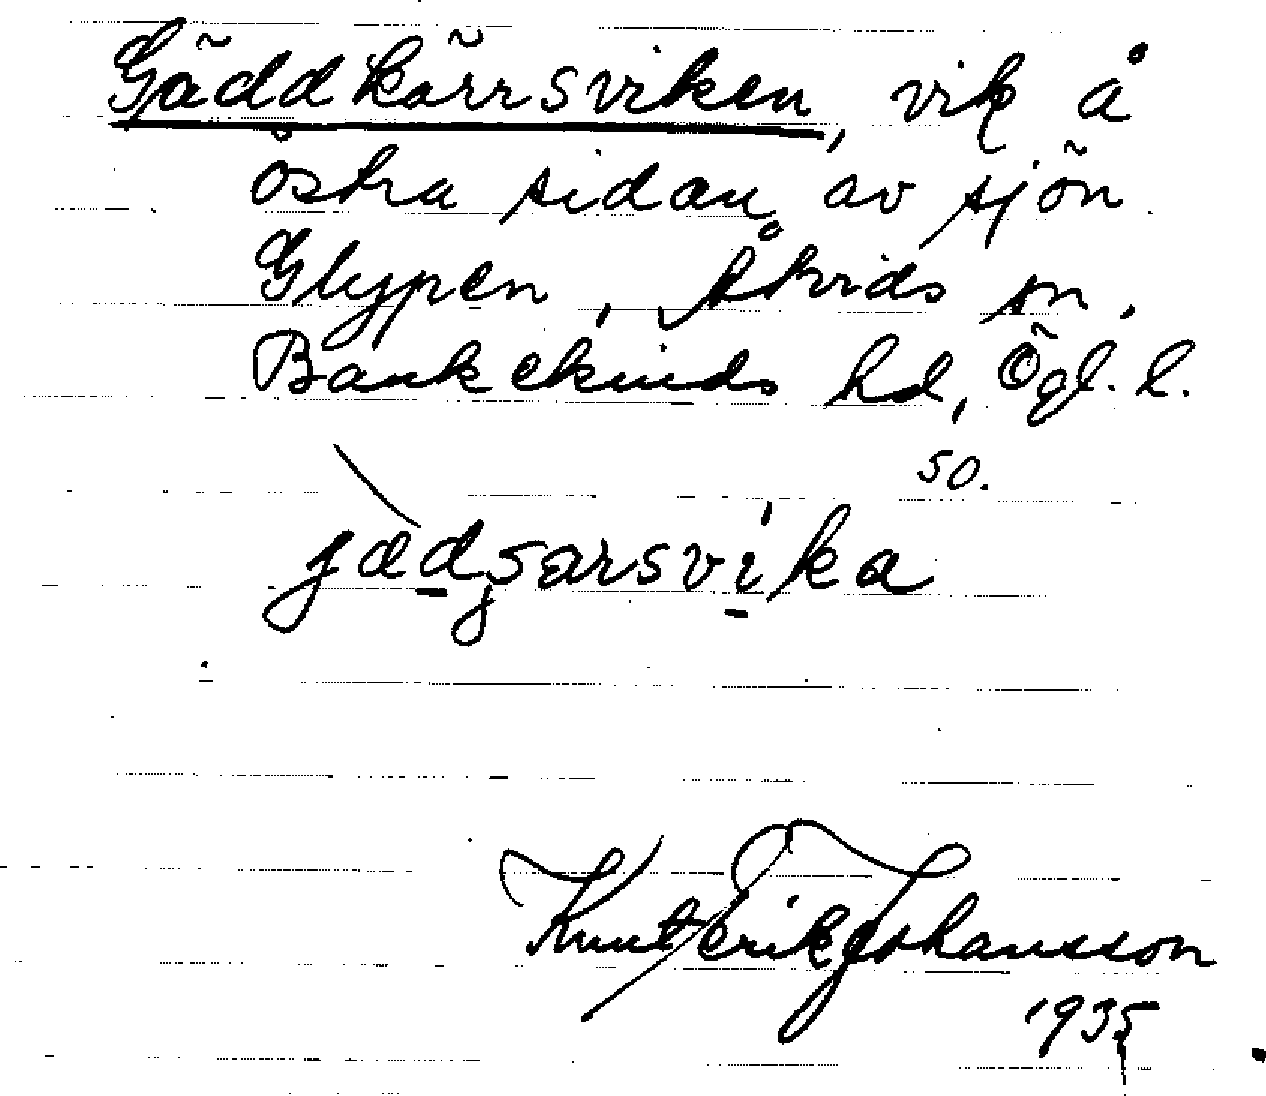 Gäddkärrsviken, vik å
östra sidan av sjön
Glypen, Åtvids sn,
Bankekinds hd, Ögl. l.
50.
Knut Erik Johansson
1935